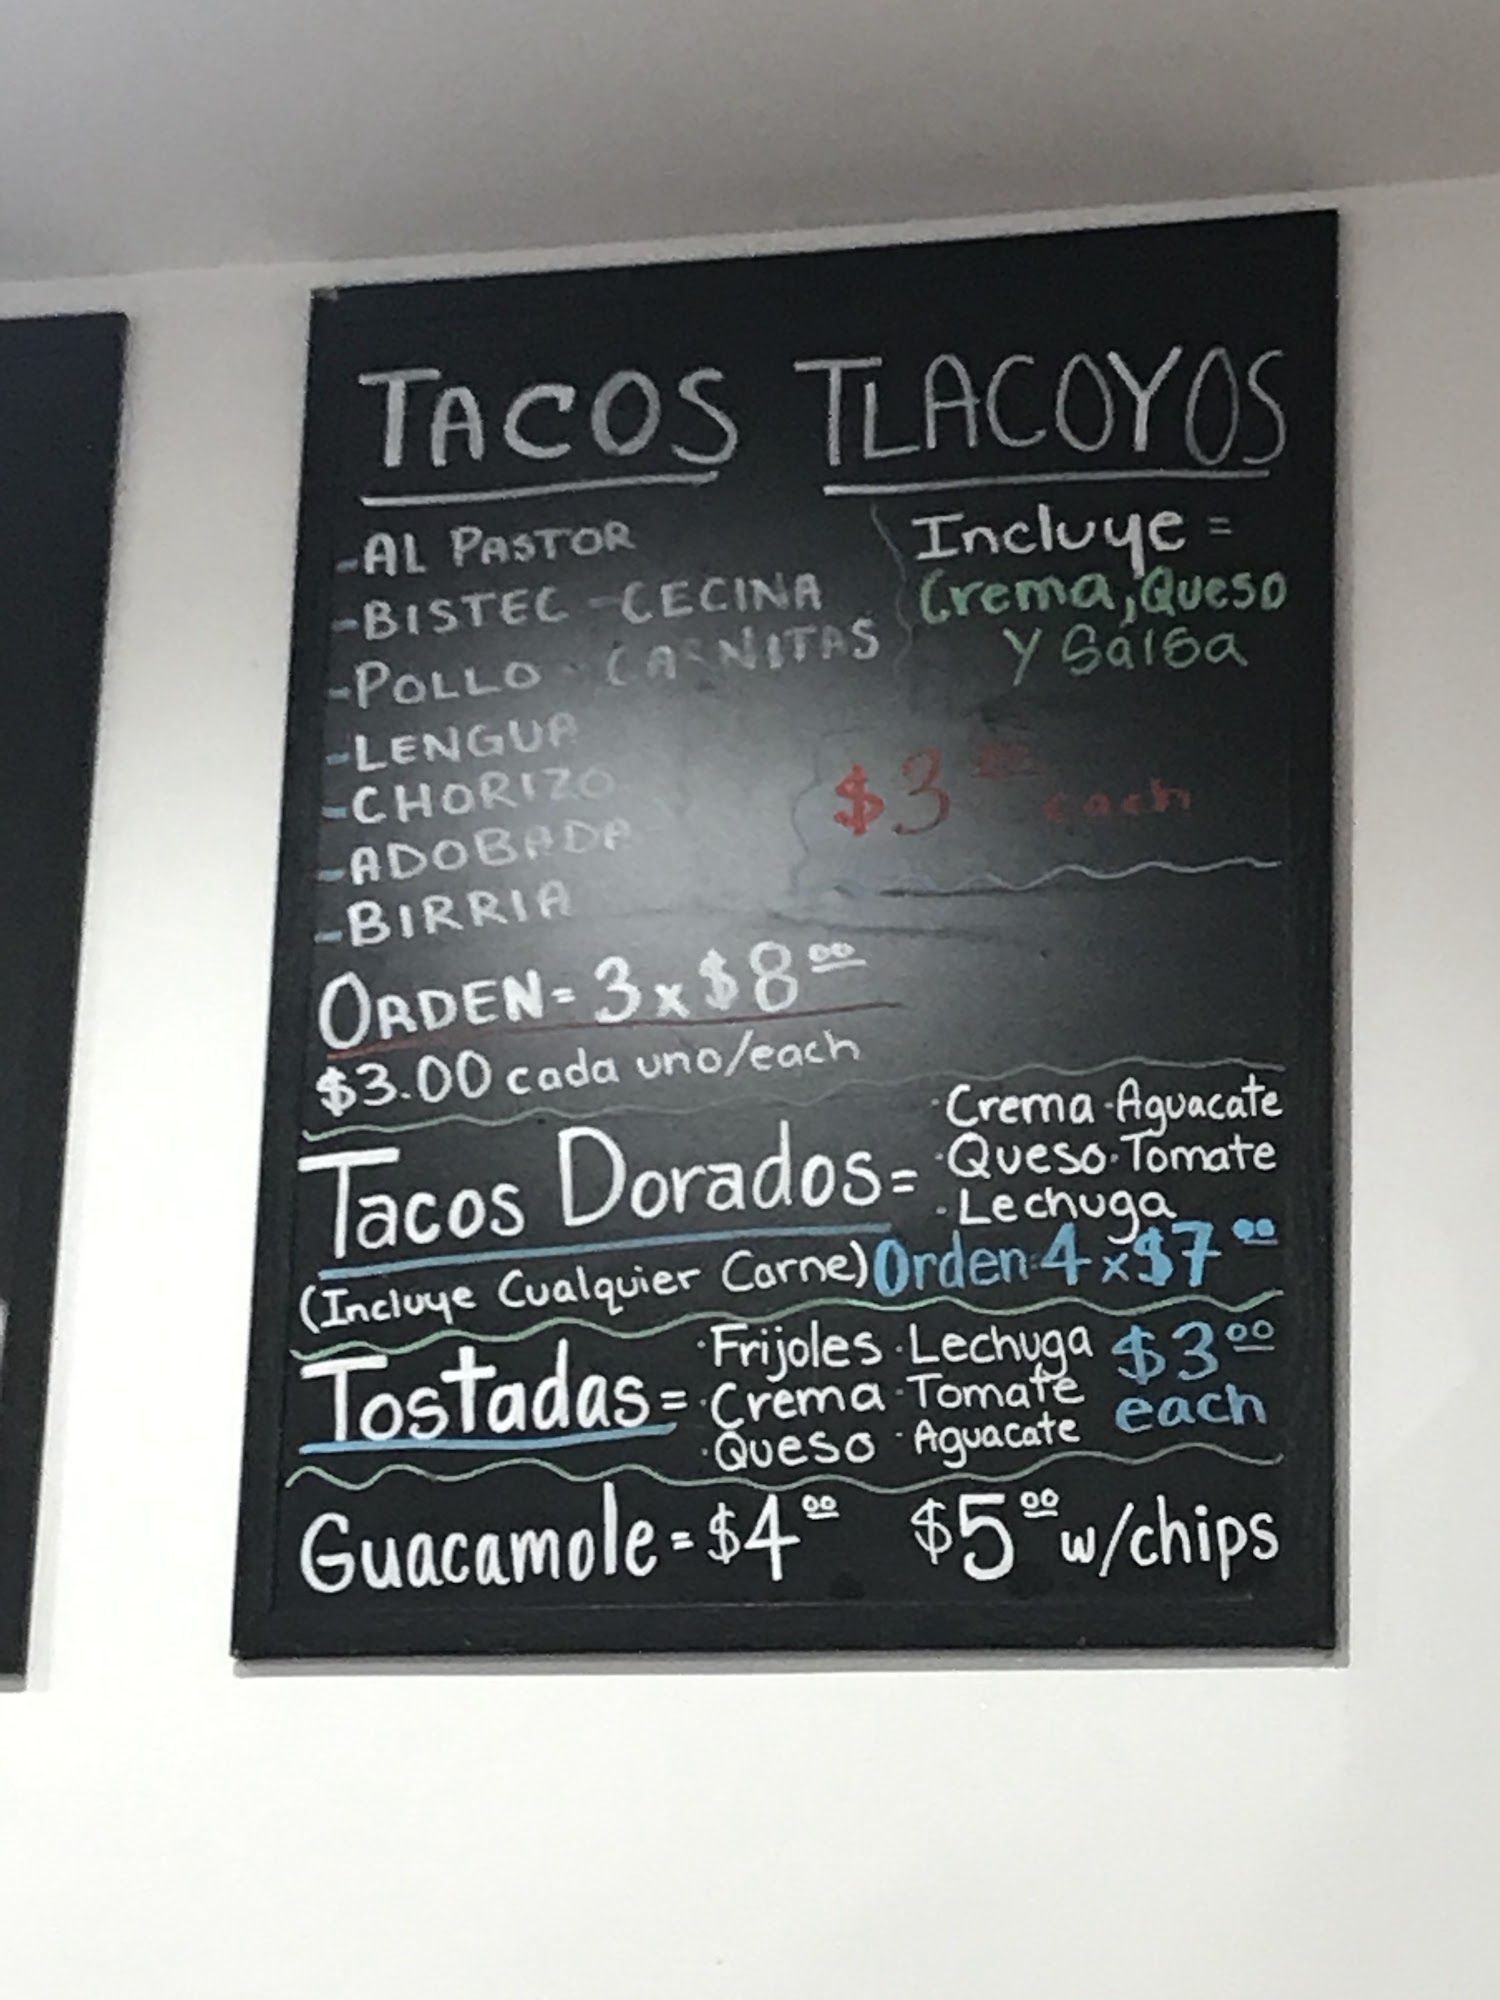 TACOS
-AL PASTOR
-BISTEC -CECINA
-POLLO CARNITAS
-LENGUA
-CHORIZO
-ADOBADA
-BIRRIA
ORDEN= 3x$8.00
$3.00 cada uno/each
TLACOYOS
Incluye =
Crema, Queso
y Salsa
$3.00 each
Tacos Dorados=
·Crema ·Aguacate
·Queso ·Tomate
·Lechuga
(Incluye Cualquier Carne) Orden 4x$7.00
Tostadas=
·Frijoles ·Lechuga
·Crema ·Tomate
·Queso ·Aguacate
$3.00
each
Guacamole=$4.00 $5.00 w/chips